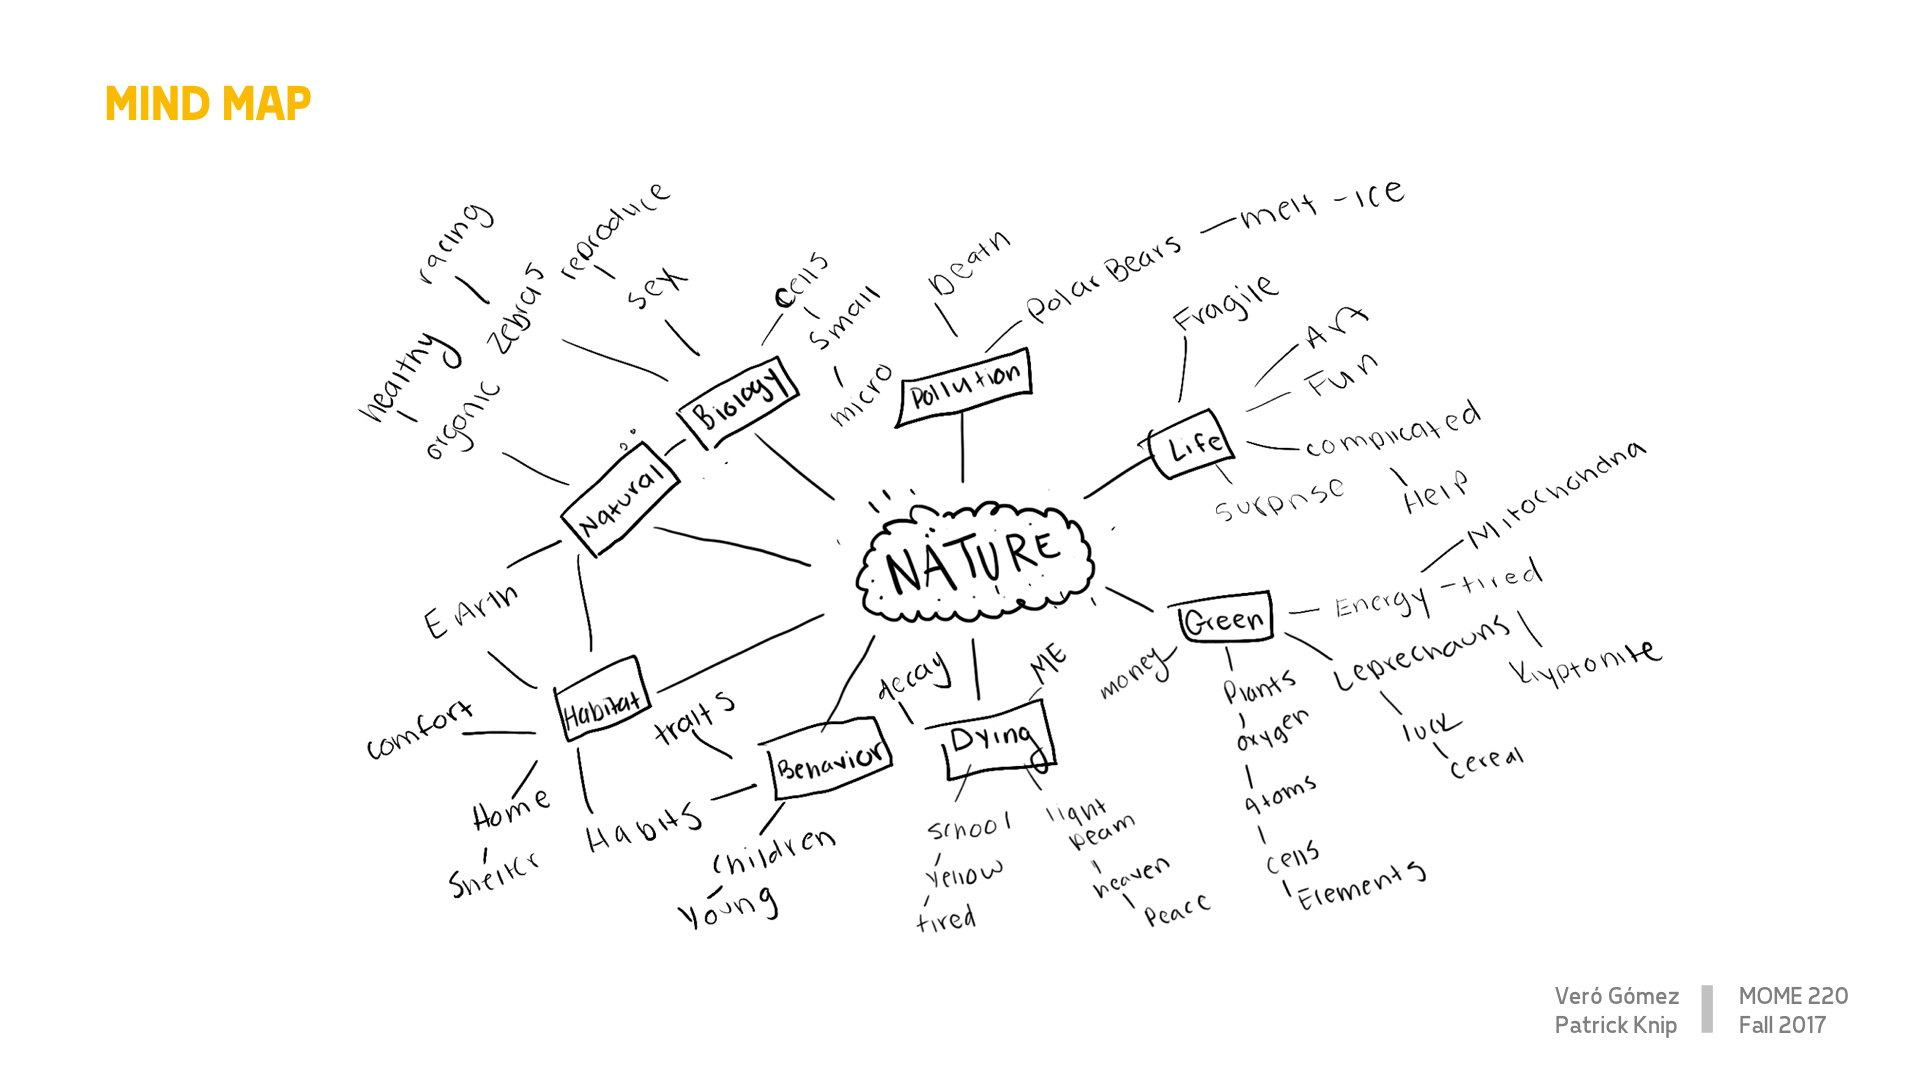 MIND MAP
racing
zebras
reproduce
sex
cells
small
micro
healthy
organic
Biology
Natural
Death
Polar Bears
melt - ice
Pollution
Fragile
Art
Fun
Life
complicated
Help
surprise
NATURE
Mitochondria
Energy - tired
Kryptonite
Green
money
Plants
oxygen
Atoms
cells
Elements
Leprechauns
luck
cereal
Earth
Habitat
comfort
Home
Shelter
Habits
traits
Behavior
Children
young
decay
ME
Dying
school
yellow
tired
light
beam
heaven
Peace
Veró Gómez
Patrick Knip
MOME 220
Fall 2017